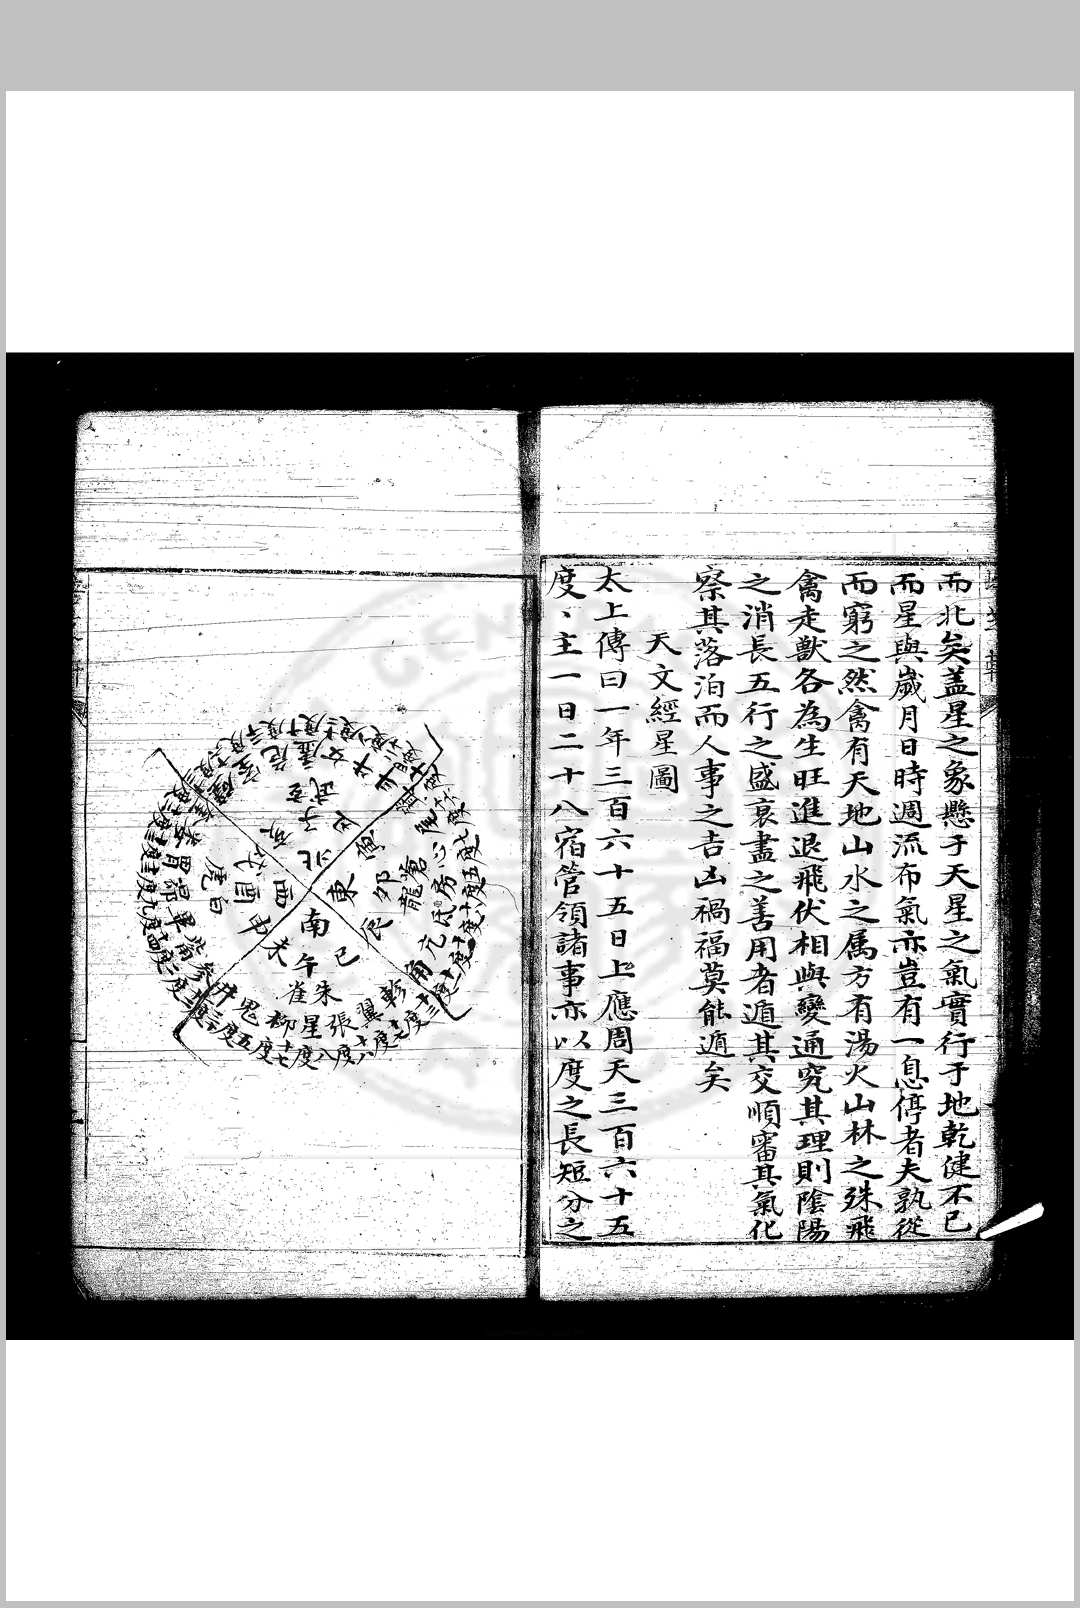 而北矣蓋星之象懸于天星之氣實行于地乾健不已
而星與歲月日時週流布氣亦豈有一息停者夫孰從
而窮之然禽有天地山水之属方有湯火山林之殊飛
禽走獸各為生旺進退飛伏相與變通究其理則陰陽
之消長五行之盛衰盡之善用者遁其交順審其氣化
察其落泊而人事之吉凶禍福莫能遁矣
天文經星圖
太上傳曰一年三百六十五日上應周天三百六十五
度丶主一日二十八宿管領諸事亦以度之長短分之
北
子
丑
東
卯
辰
蒼龍
南
巳
午
未
朱雀
西
申
酉
戌
白虎
角
亢
氐
房
心
尾
箕
斗
牛
女
虛
危
室
胃
昴
畢
觜
參
井
鬼
柳
星
張
翼
軫